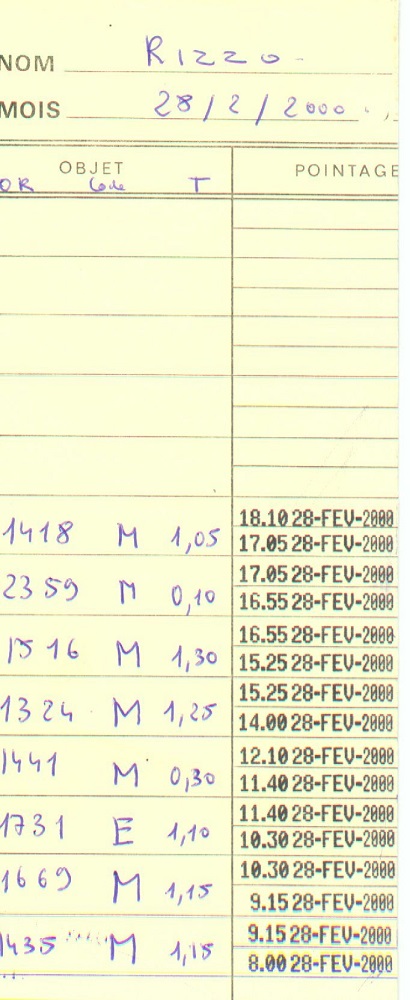 NOM Rizzo
MOIS 28/2/2000
OBJET POINTAGE
OR Code T
18.10 28-FEV-2000
1418 M 1,05
17.05 28-FEV-2000
17.05 28-FEV-2000
2359 M 0,10
16.55 28-FEV-2000
16.55 28-FEV-2000
1516 M 1,30
15.25 28-FEV-2000
15.25 28-FEV-2000
1324 M 1,25
14.00 28-FEV-2000
12.10 28-FEV-2000
1441 M 0,30
11.40 28-FEV-2000
11.40 28-FEV-2000
1731 E 1,10
10.30 28-FEV-2000
10.30 28-FEV-2000
1669 M 1,15
9.15 28-FEV-2000
9.15 28-FEV-2000
1435 M 1,15
8.00 28-FEV-2000